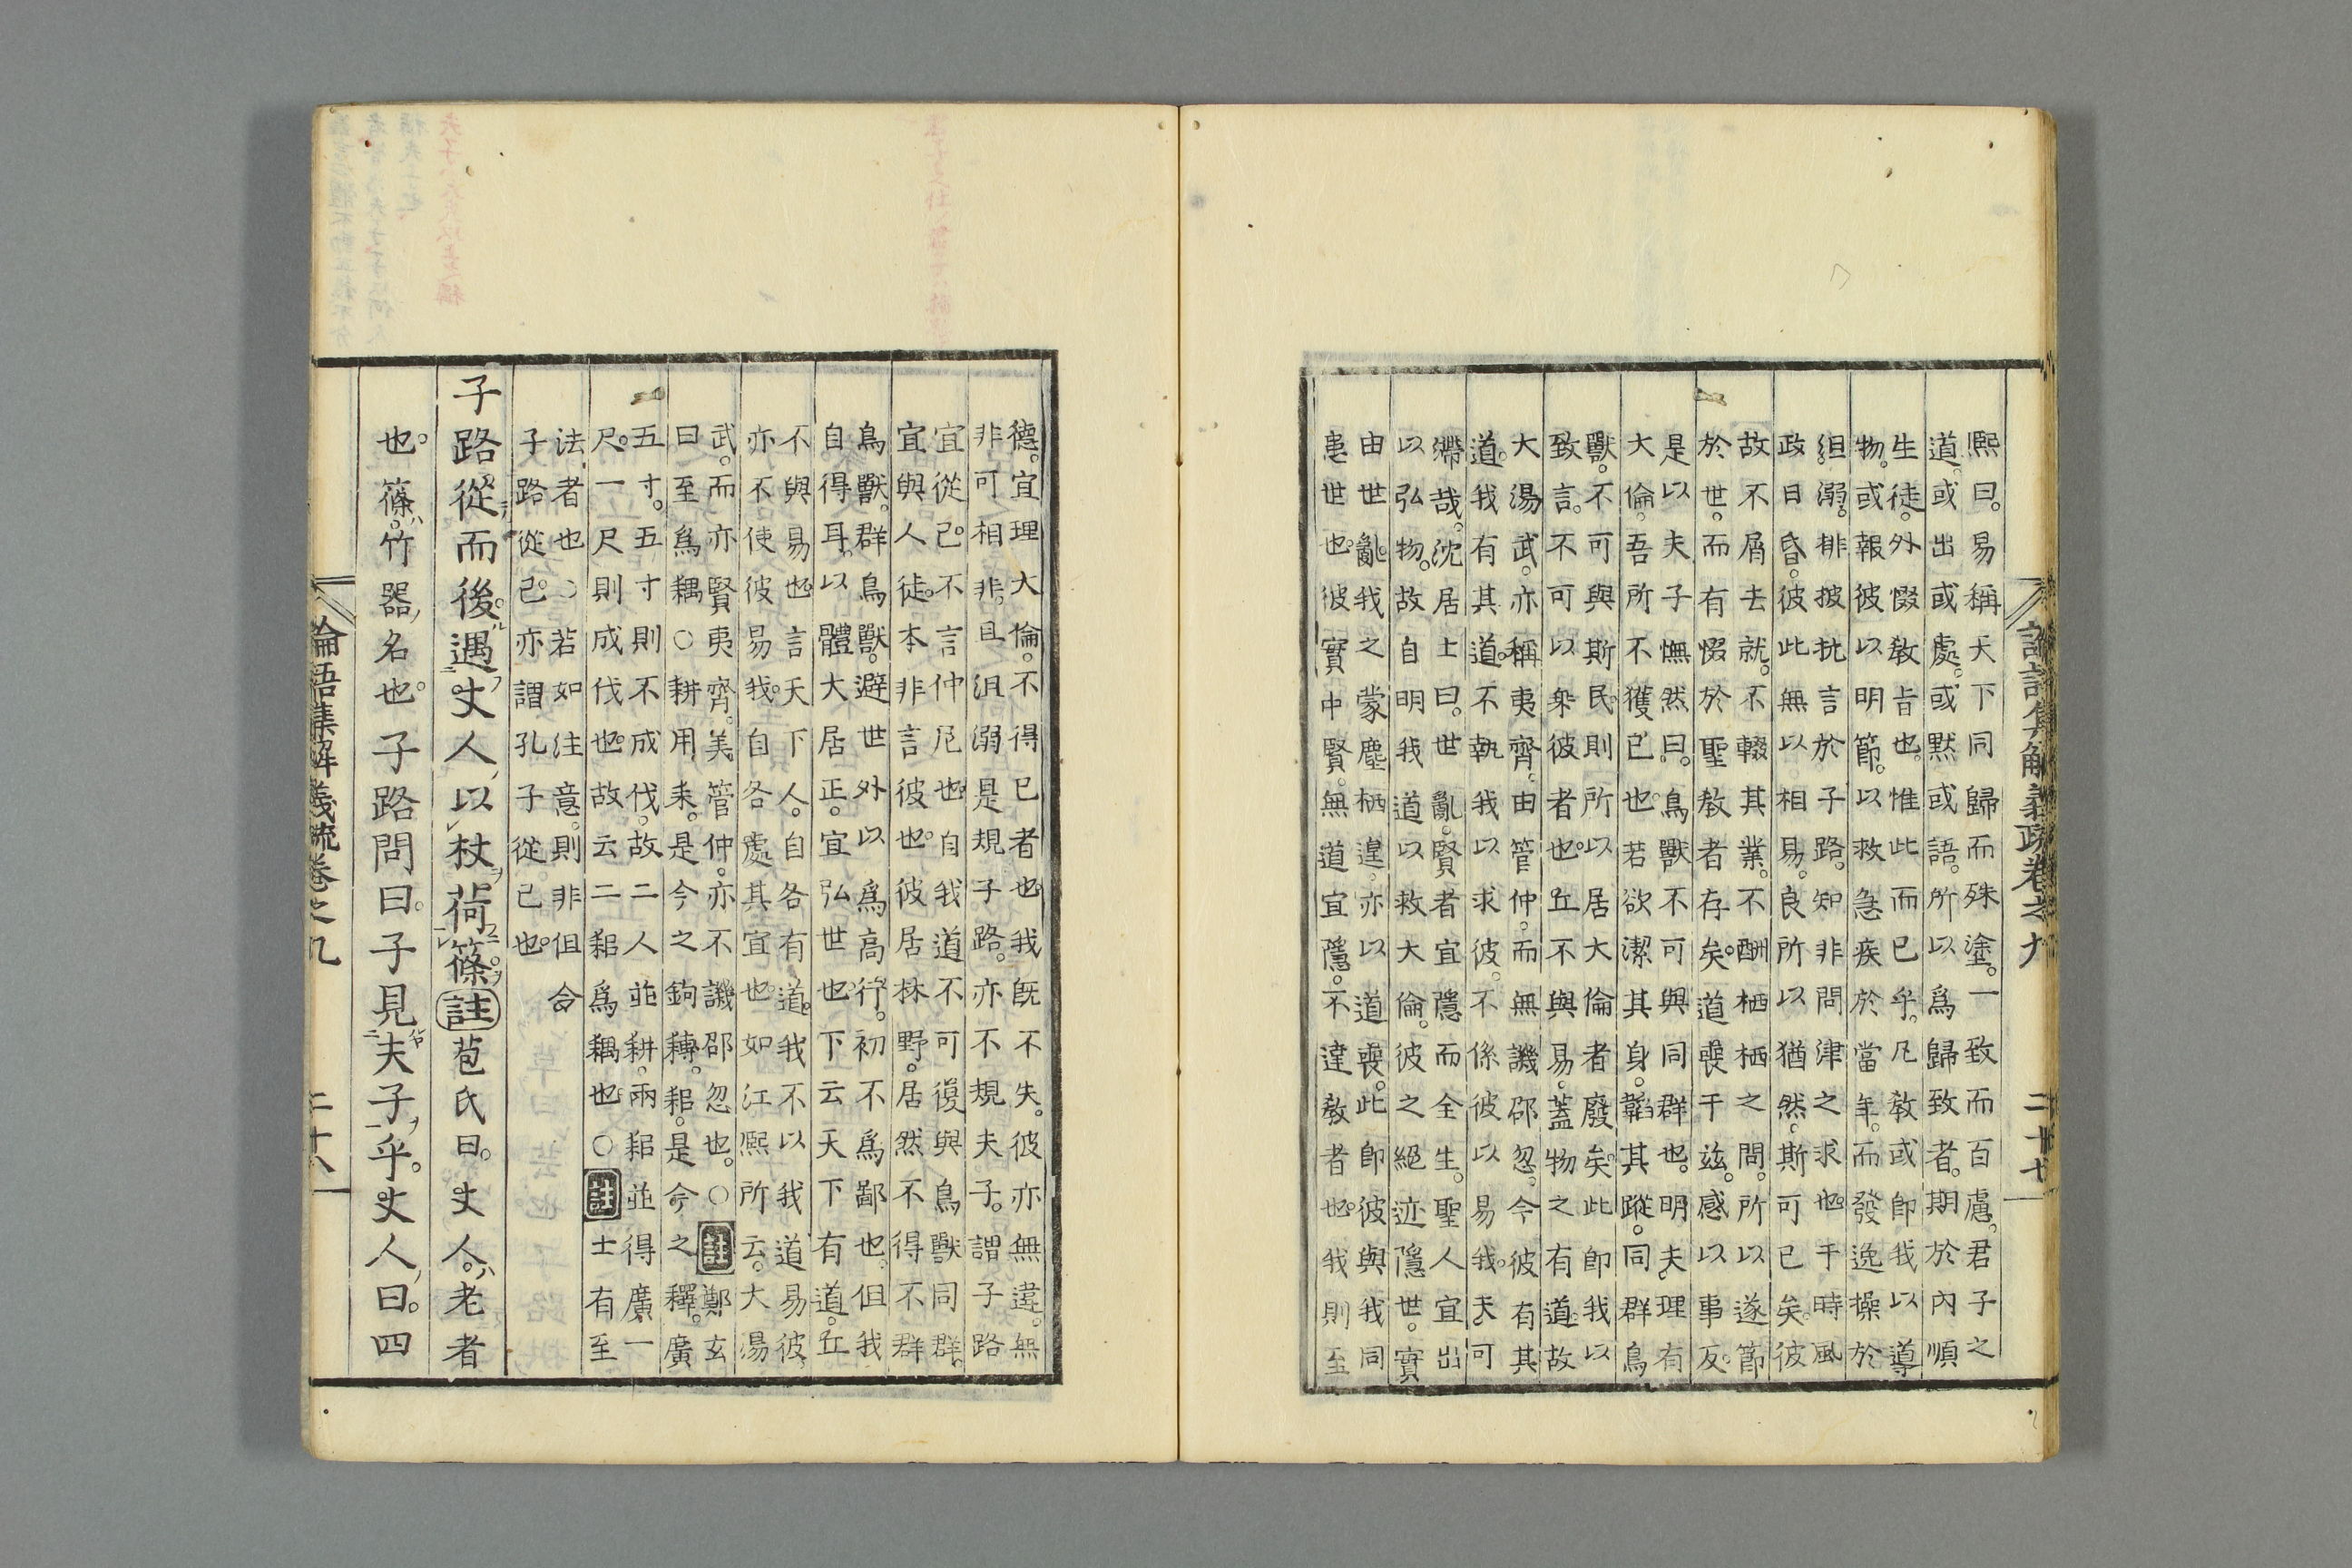 論語集解義疏卷之九
二十七
熙曰。易稱天下同歸而殊塗。一致而百慮。君子之
道。或出或處。或默或語。所以爲歸致者。期於內順
生徒。外愍教旨也。惟此而已乎。凡教或即我以導
物。或報彼以明節。以救急疾於當年。而發逸操於
沮溺。排披抗言於子路。知非問津之求也。于時風
政日昏。彼此無以相易。良所以猶然。斯可已矣。彼
故不屑去就。不輟其業。不酬栖栖之問。所以遂節
於世。而有愍於聖教者存矣。道喪于茲。感以事反。
是以夫子憮然曰。鳥獸不可與同群也。明夫。理有
大倫。吾所不獲已也。若欲潔其身。韜其蹤。同群鳥
獸。不可與斯民。則所以居大倫者廢矣。此即我以
致言。不可以枲彼者也。丘不與易。蓋物之有道。故
大湯武。亦稱夷齊。由管仲。而無譏邵忽。今彼有其
道。我有其道。不執我以求彼。不係彼以易我。夭可
滯哉。沈居士曰。世亂。賢者宜隱而全生。聖人宜出
以弘物。故自明我道以救大倫。彼之絕迹隱世。實
由世亂。我之蒙塵栖遑。亦以道喪。此即彼與我同
患世也。彼實中賢。無道宜隱。不達教者也。我則至
德。宜理大倫。不得已者也。我旣不失。彼亦無違。無
非可相非。且沮溺是規子路。亦不規夫子。謂子路
宜從己。不言仲尼也。自我道不可復與鳥獸同群。
宜與人徒。本非言彼也。彼居林野。居然不得不群
鳥獸。群鳥獸。避世外以爲高行。初不爲鄙也。但我
自得耳。以體大居正。宜弘世也。下云天下有道。丘
不與易也。言天下人。自各有道。我不以我道易彼。
亦不使彼易我。自各處其宜也。如江熙所云。大湯
武。而亦賢夷齊。美管仲。亦不譏邵忽也。○註鄭玄
曰至爲耦○耕用耒。是今之鉤耨。耜。是今之釋。廣
五寸。五寸則不成伐。故二人並耕。兩耜並得廣一
尺。一尺則成伐也。故云二耜爲耦也。○註士有至
法者也○若如注意。則非但令
子路從己。亦謂孔子從己也。
子路從而後。遇丈人、以杖荷篠。註苞氏曰。丈人。老者
也。篠。竹器名也。子路問曰。子見夫子乎。丈人曰。四
論語集解義疏卷之九
二十八